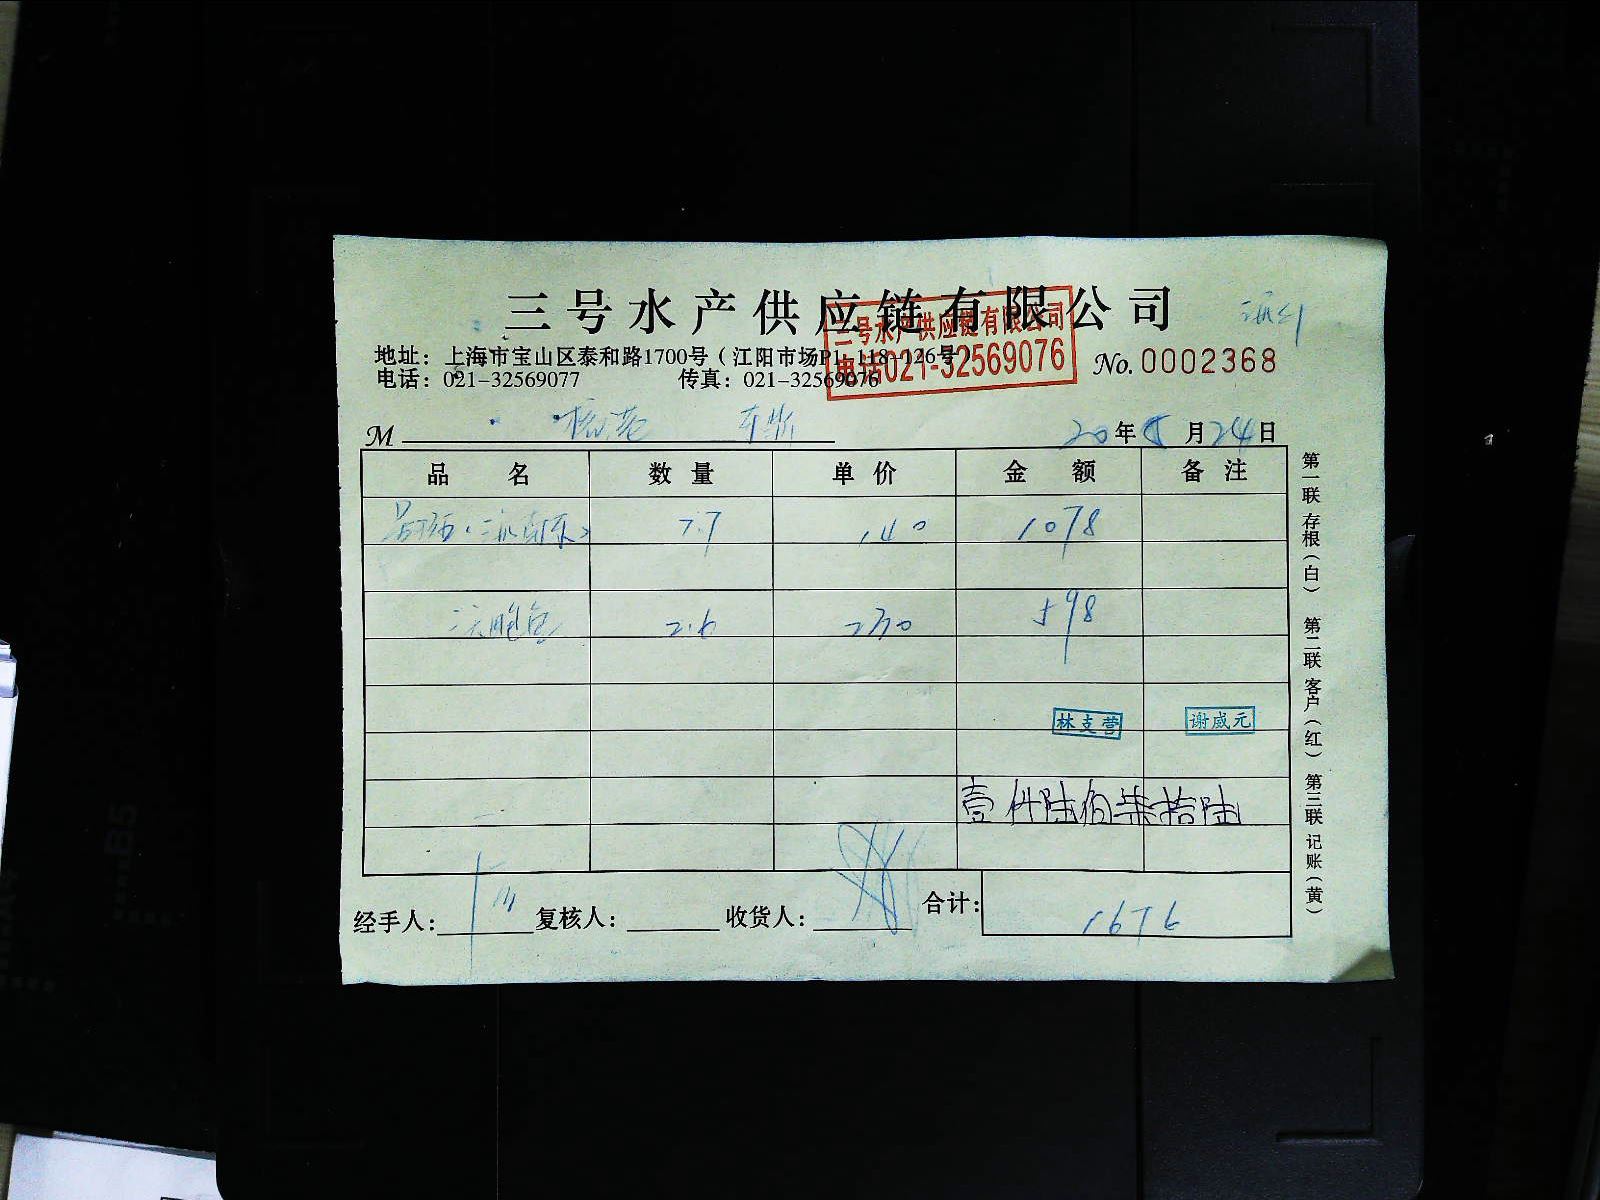 三号水产供应链有限公司
三号水产供应链有限公司
电话021-32569076
地址：上海市宝山区泰和路1700号（江阳市场P1-118-126号）
No. 0002368
电话：021-32569077 传真：021-32569076
M
20年8月24日
品名 数量 单价 金额 备注
7.7 140 1078
鲍鱼 2.6 230 598
林支营 谢威元
壹仟陆佰柒拾陆
经手人： 复核人： 收货人： 合计： 1676
第一联 存根（白） 第二联 客户（红） 第三联 记账（黄）
B5